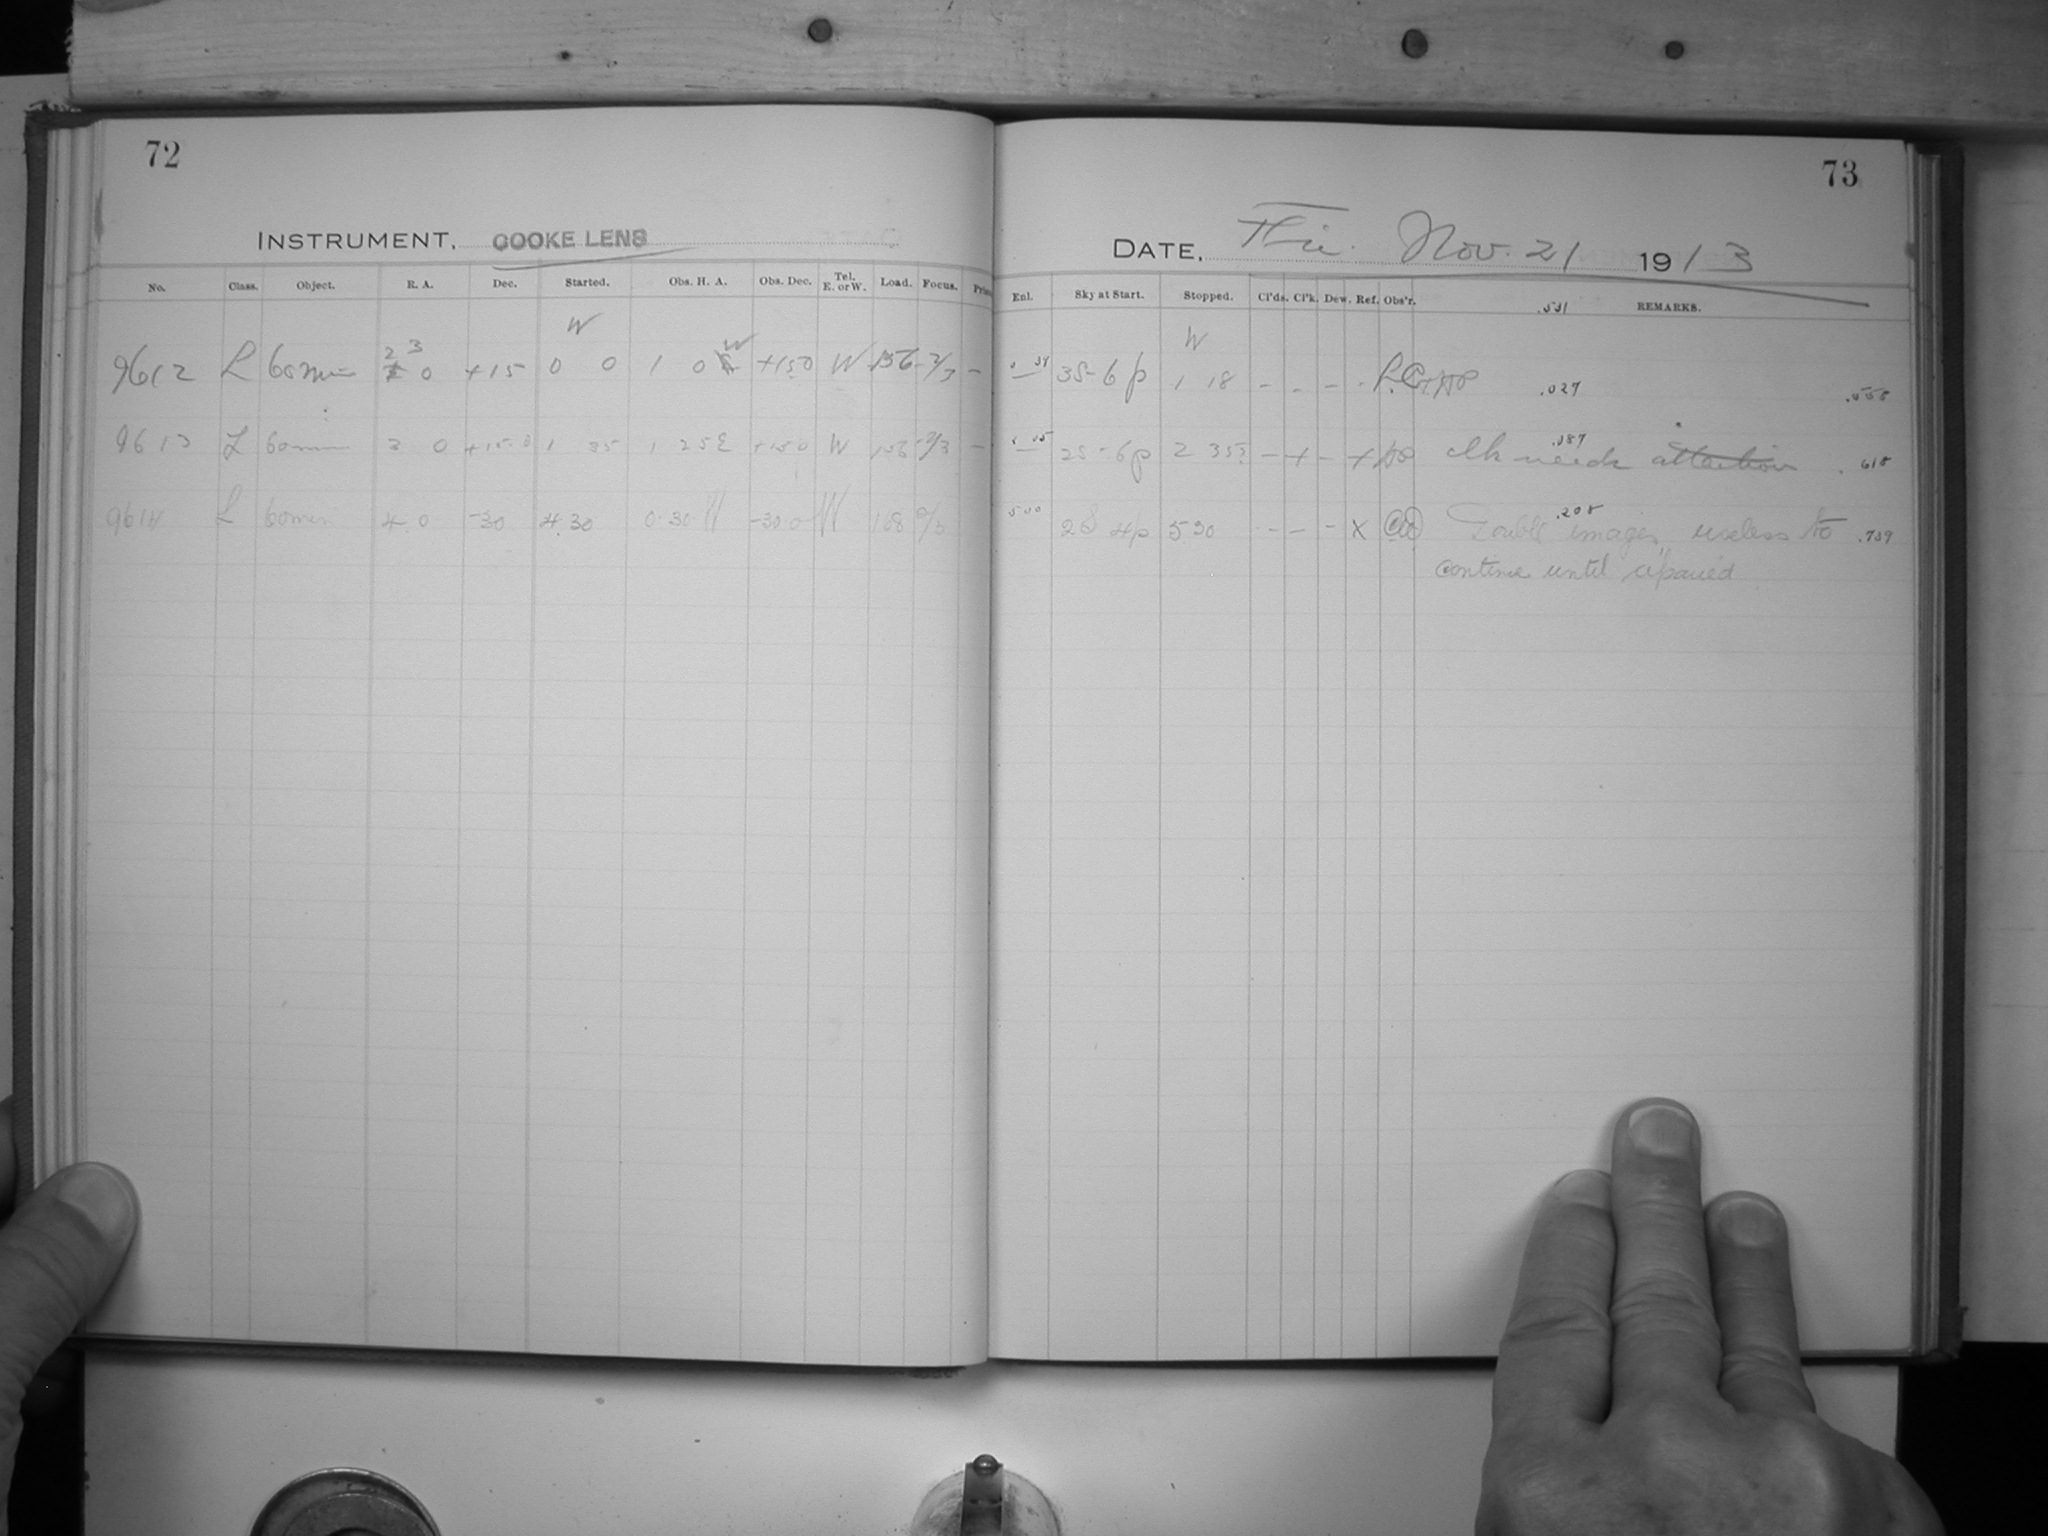 72
INSTRUMENT, COOKE LENS
No. Class. Object. R. A. Dec. Started. Obs. H. A. Obs. Dec. Tel. E. or W. Load. Focus.
W
9612 L 60 min 23 0 +15 0 0 1 0 W +15 0 W 156 -2/3 -
9613 L 60 min 3 0 +15.0 1 35 1 25 E +15 0 W 156 -2/3 -
9614 L 60 min 4 0 -30 4 30 0.30 W -30 0 W 168 0/3
73
DATE, Fri. Nov. 21 1913
Enl. Sky at Start. Stopped. Cl'ds. Cl'k. Dew. Ref. Obs'r. .531 REMARKS.
W
35-6p 1 18 - - - - .027 .558
25-6p 2 35 - + - + .087 Clk needs attention .618
500 28 4p 5 30 - - - X .208 Double images, useless to .739
continue until repaired